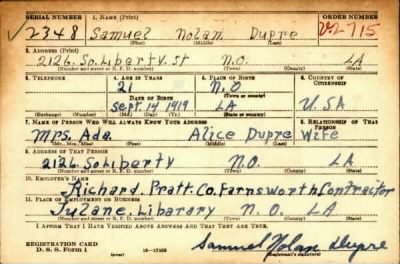 SERIAL NUMBER 1. NAME (Print) ORDER NUMBER
2348 Samuel Nolan Dupre V-2715
(First) (Middle) (Last)
2. ADDRESS (Print)
2126. So. Liberty. St N.O. LA
(Number and street or R. F. D. number) (Town) (County) (State)
3. TELEPHONE 4. AGE IN YEARS 5. PLACE OF BIRTH 6. COUNTRY OF CITIZENSHIP
21 N.O
DATE OF BIRTH (Town or county)
Sept. 14 1919 LA U.SA
(Exchange) (Number) (Mo.) (Day) (Yr.) (State or country)
7. NAME OF PERSON WHO WILL ALWAYS KNOW YOUR ADDRESS 8. RELATIONSHIP OF THAT PERSON
Mrs. Ada. Alice Dupre Wife
(Mr., Mrs., Miss) (First) (Middle) (Last)
9. ADDRESS OF THAT PERSON
2126. So Liberty N.O. LA
(Number and street or R. F. D. number) (Town) (County) (State)
10. EMPLOYER'S NAME
Richard. Pratt. Co. Farnsworth Contractor
11. PLACE OF EMPLOYMENT OR BUSINESS
Tulane. Libarary N. O. LA
(Number and street or R. F. D. number) (Town) (County) (State)
I AFFIRM THAT I HAVE VERIFIED ABOVE ANSWERS AND THAT THEY ARE TRUE.
REGISTRATION CARD
D. S. S. Form 1 16-17105 Samuel Nolan Dupre
(Registrant's signature)